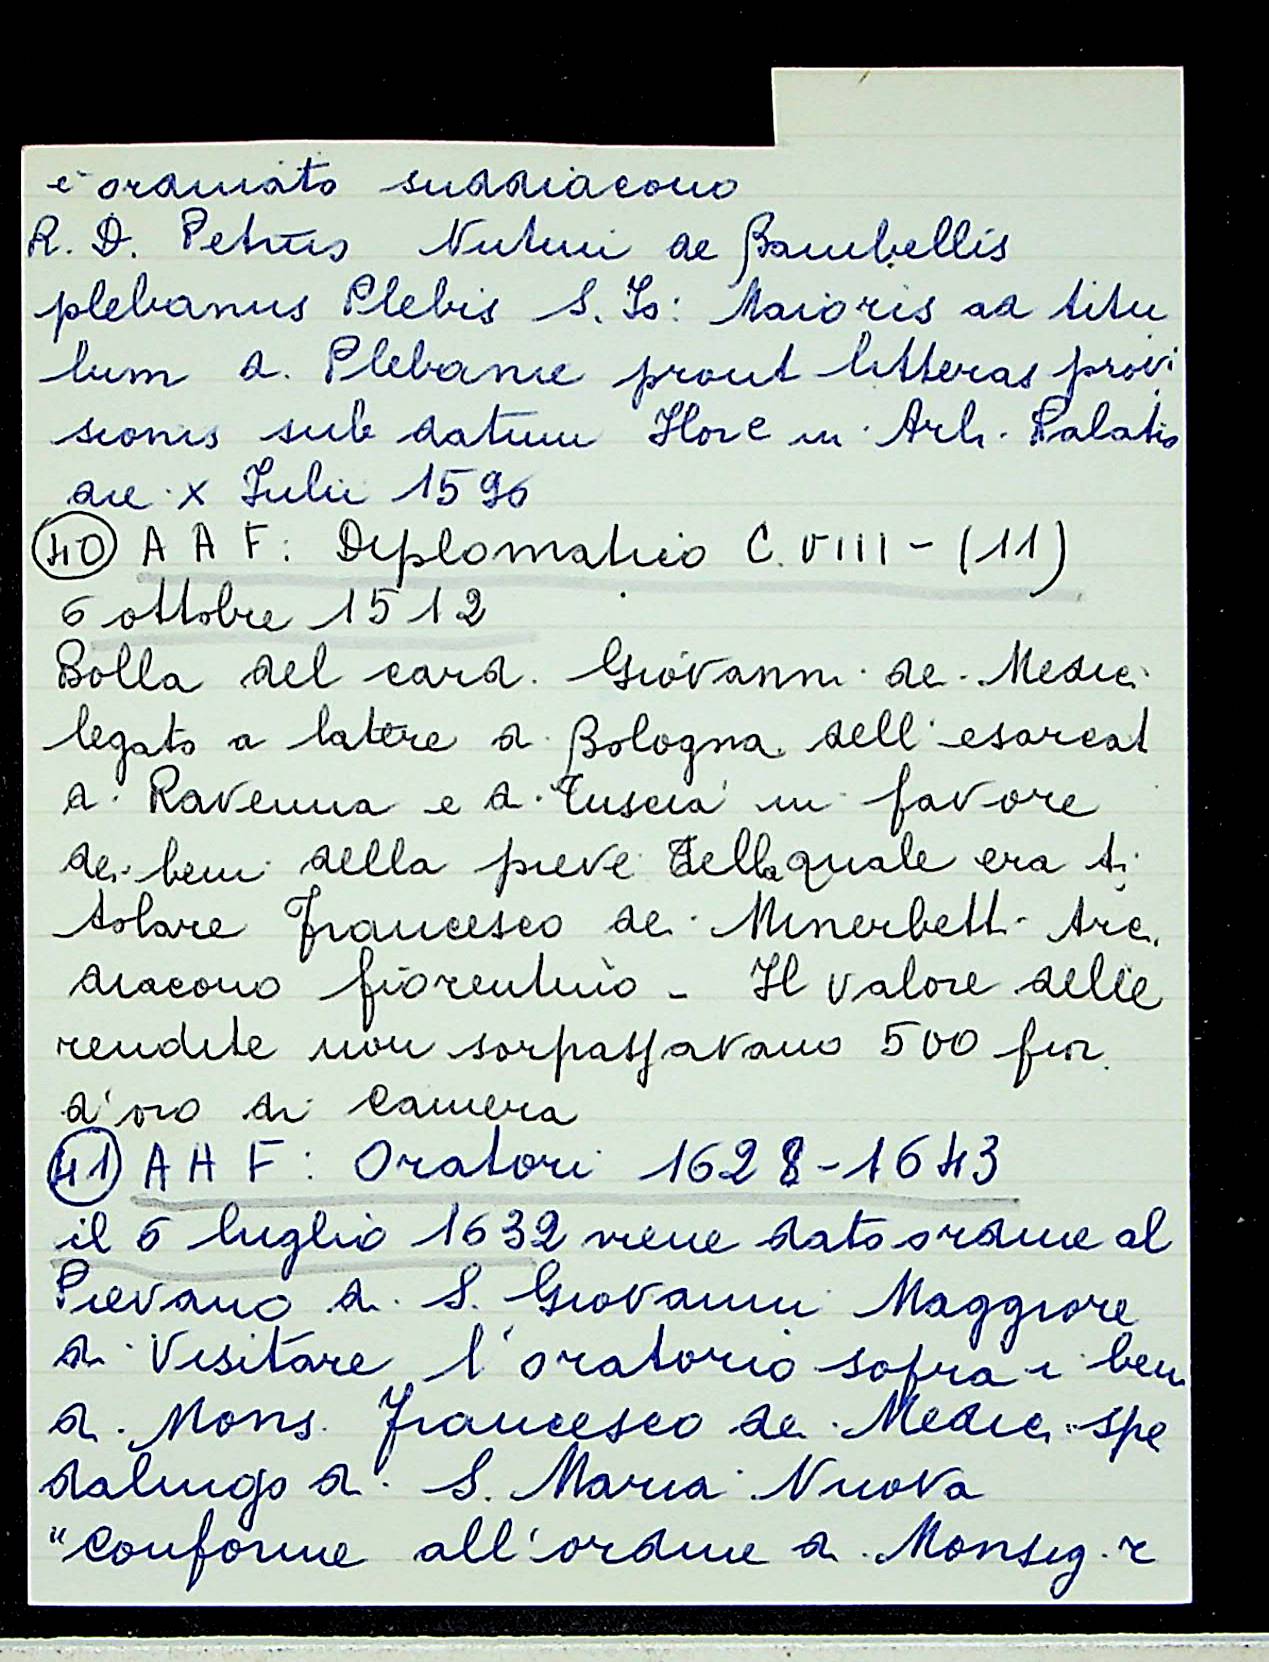 è ordinato suddiacono
R. D. Petrus Nutini de Bambellis
plebanus Plebis S. Io: Maioris ad titu
lum d. Plebanie prout litteras provi
sionis sub datum Flore in Arh. Palatio
die x Iulii 1596
40 A A F: Diplomatico C. VIII - (11)
6 ottobre 1512
Bolla del card. Giovanni de Medici
legato a latere di Bologna dell'esarcat
di Ravenna e di Tuscia in favore
dei beni della pieve della quale era ti
tolare Francesco dei Minerbetti Arci
diacono fiorentino - Il valore delle
rendite non sorpassavano 500 fior.
d'oro di Camera
41 A A F: Oratori 1628-1643
il 6 luglio 1632 viene dato ordine al
Pievano di S. Giovanni Maggiore
di visitare l'oratorio sopra i beni
di Mons. Francesco de Medici spe
dalingo di S. Maria Nuova
"Conforme all'ordine di Monsig.r